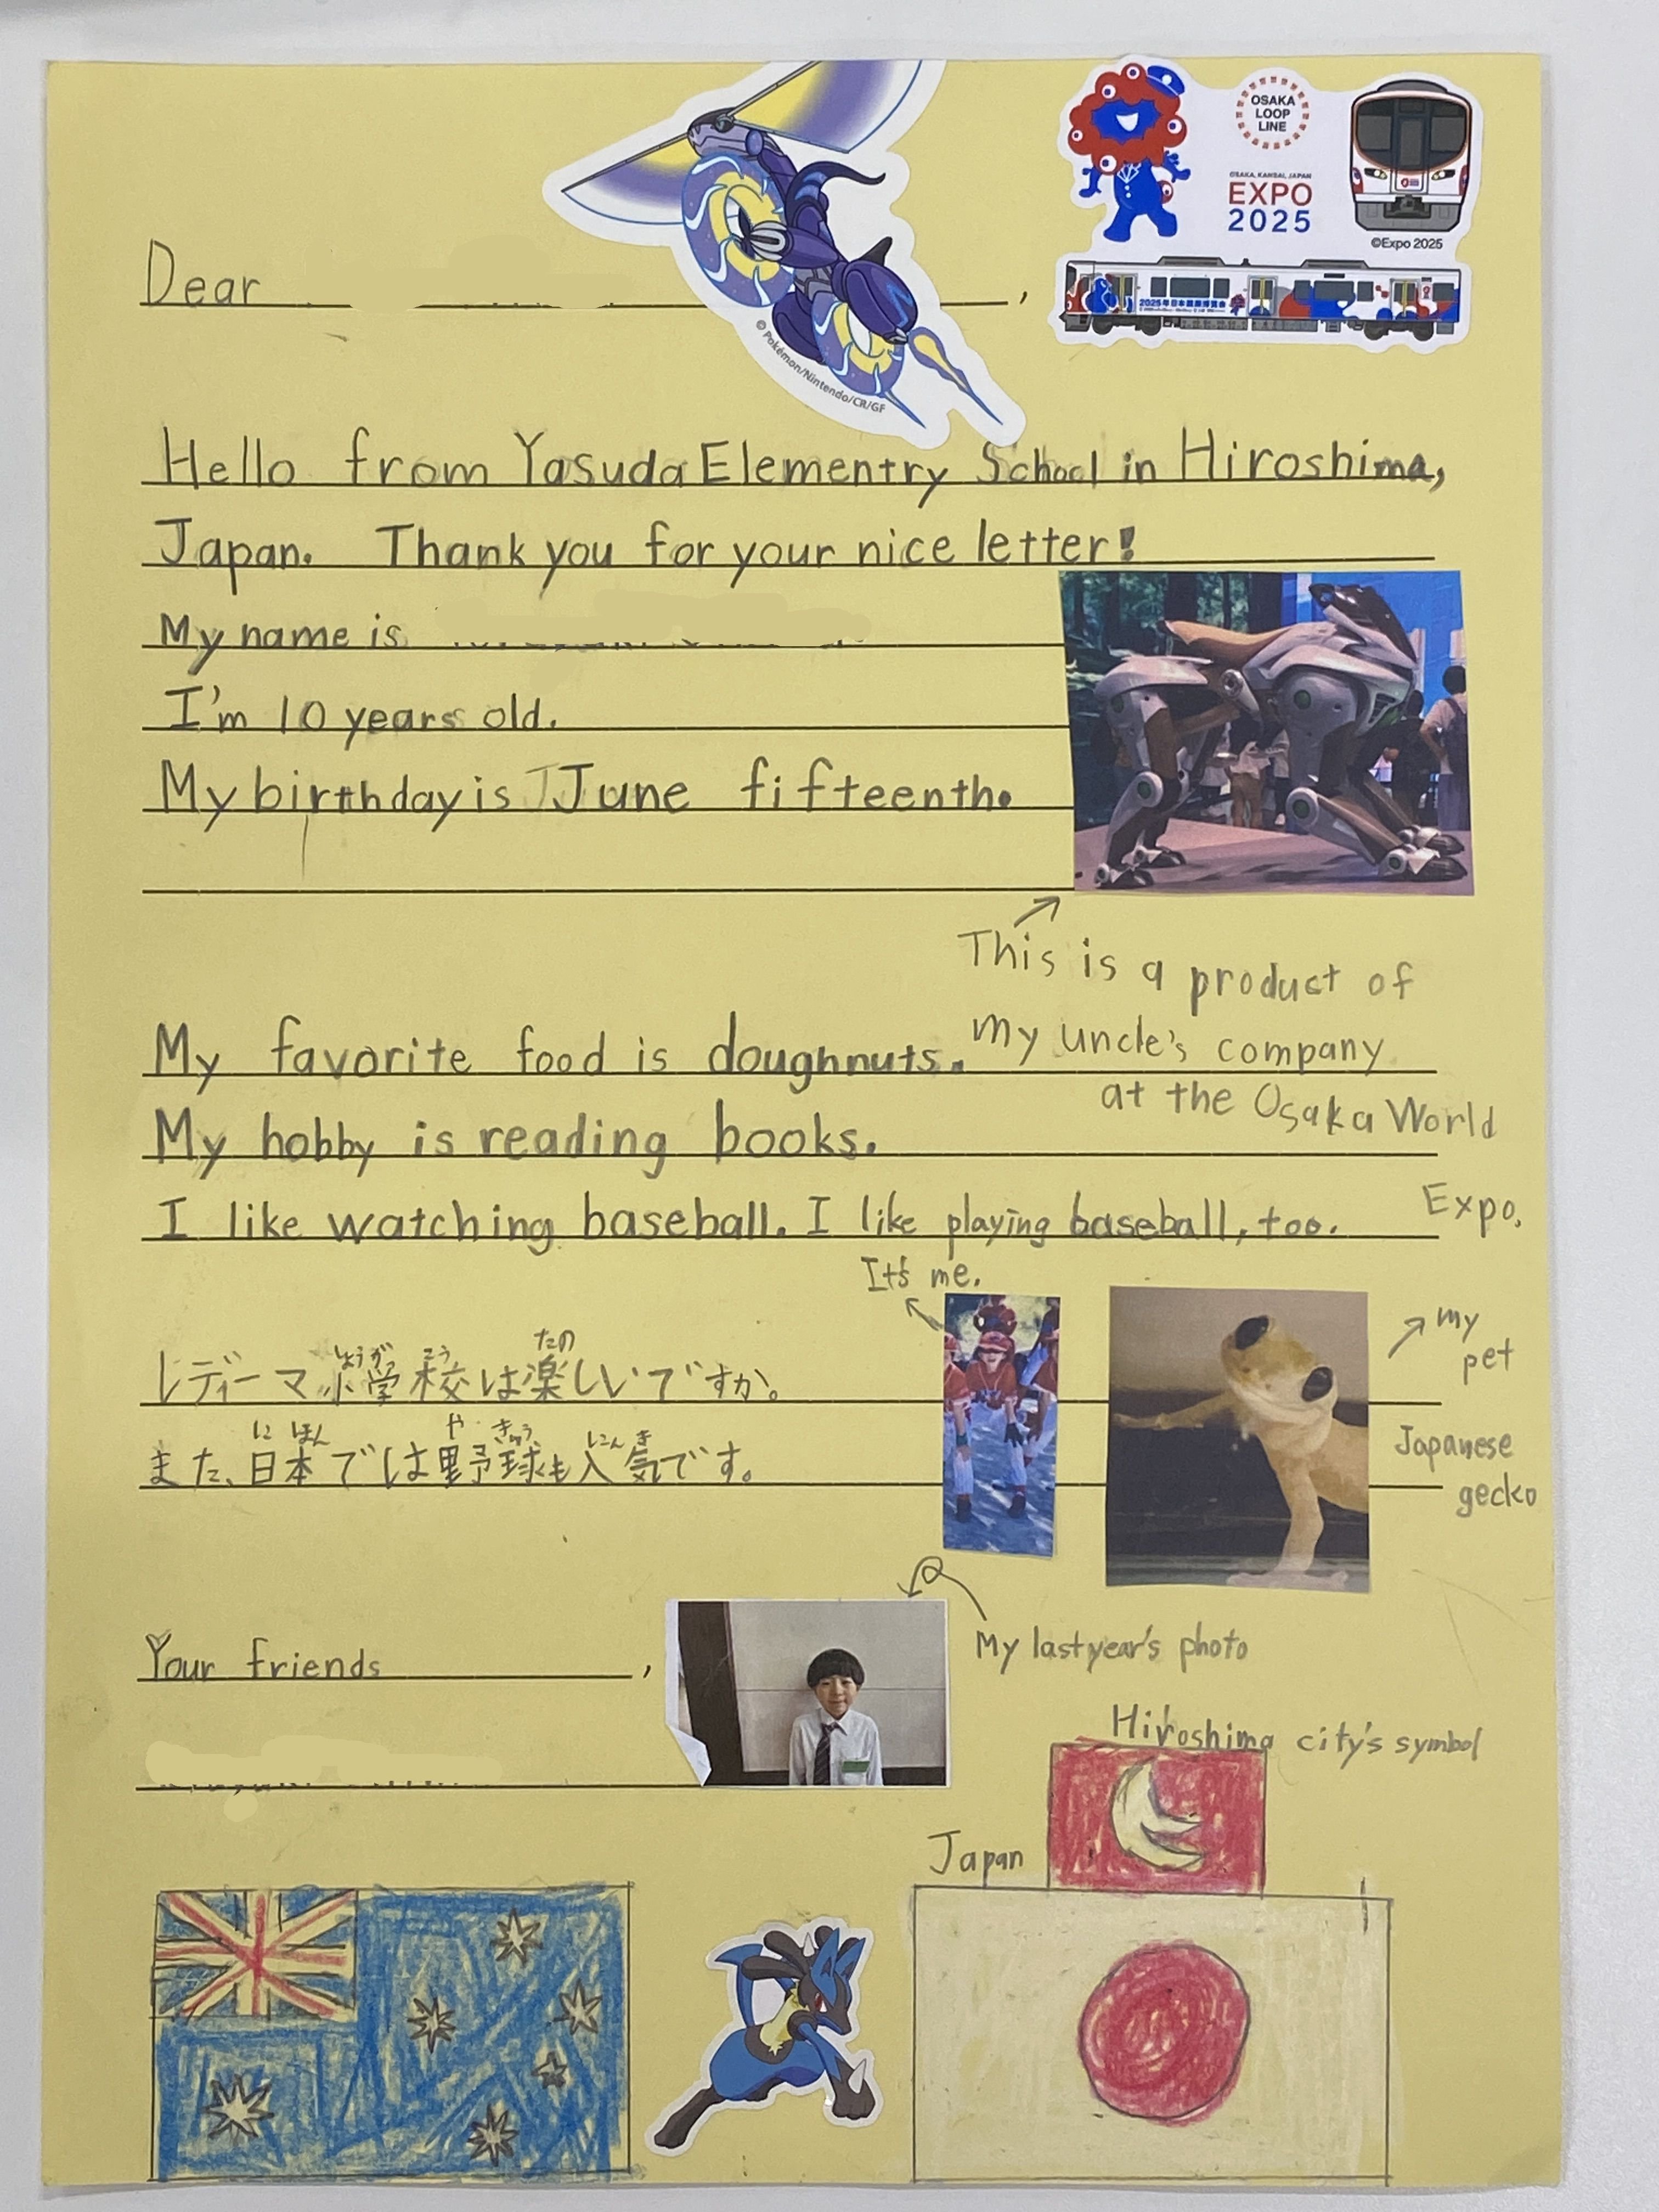 OSAKA
LOOP
LINE
OSAKA, KANSAI, JAPAN
EXPO
2025
©Expo 2025
2025年日本国際博覧会
© Pokémon/Nintendo/CR/GF
Dear ,
Hello from Yasuda Elementry School in Hiroshima,
Japan. Thank you for your nice letter!
My name is
I'm 10 years old.
My birthday is June fifteenth.
This is a product of
my uncle's company
at the Osaka World
Expo.
My favorite food is doughnuts.
My hobby is reading books.
I like watching baseball. I like playing baseball, too.
It's me.
my
pet
Japanese
gecko
しょうがっ こう たの
レディーマ小学校は楽しいですか。
に ほん や きゅう にん き
また、日本では野球も人気です。
My last year's photo
Your friends ,
Hiroshima city's symbol
Japan